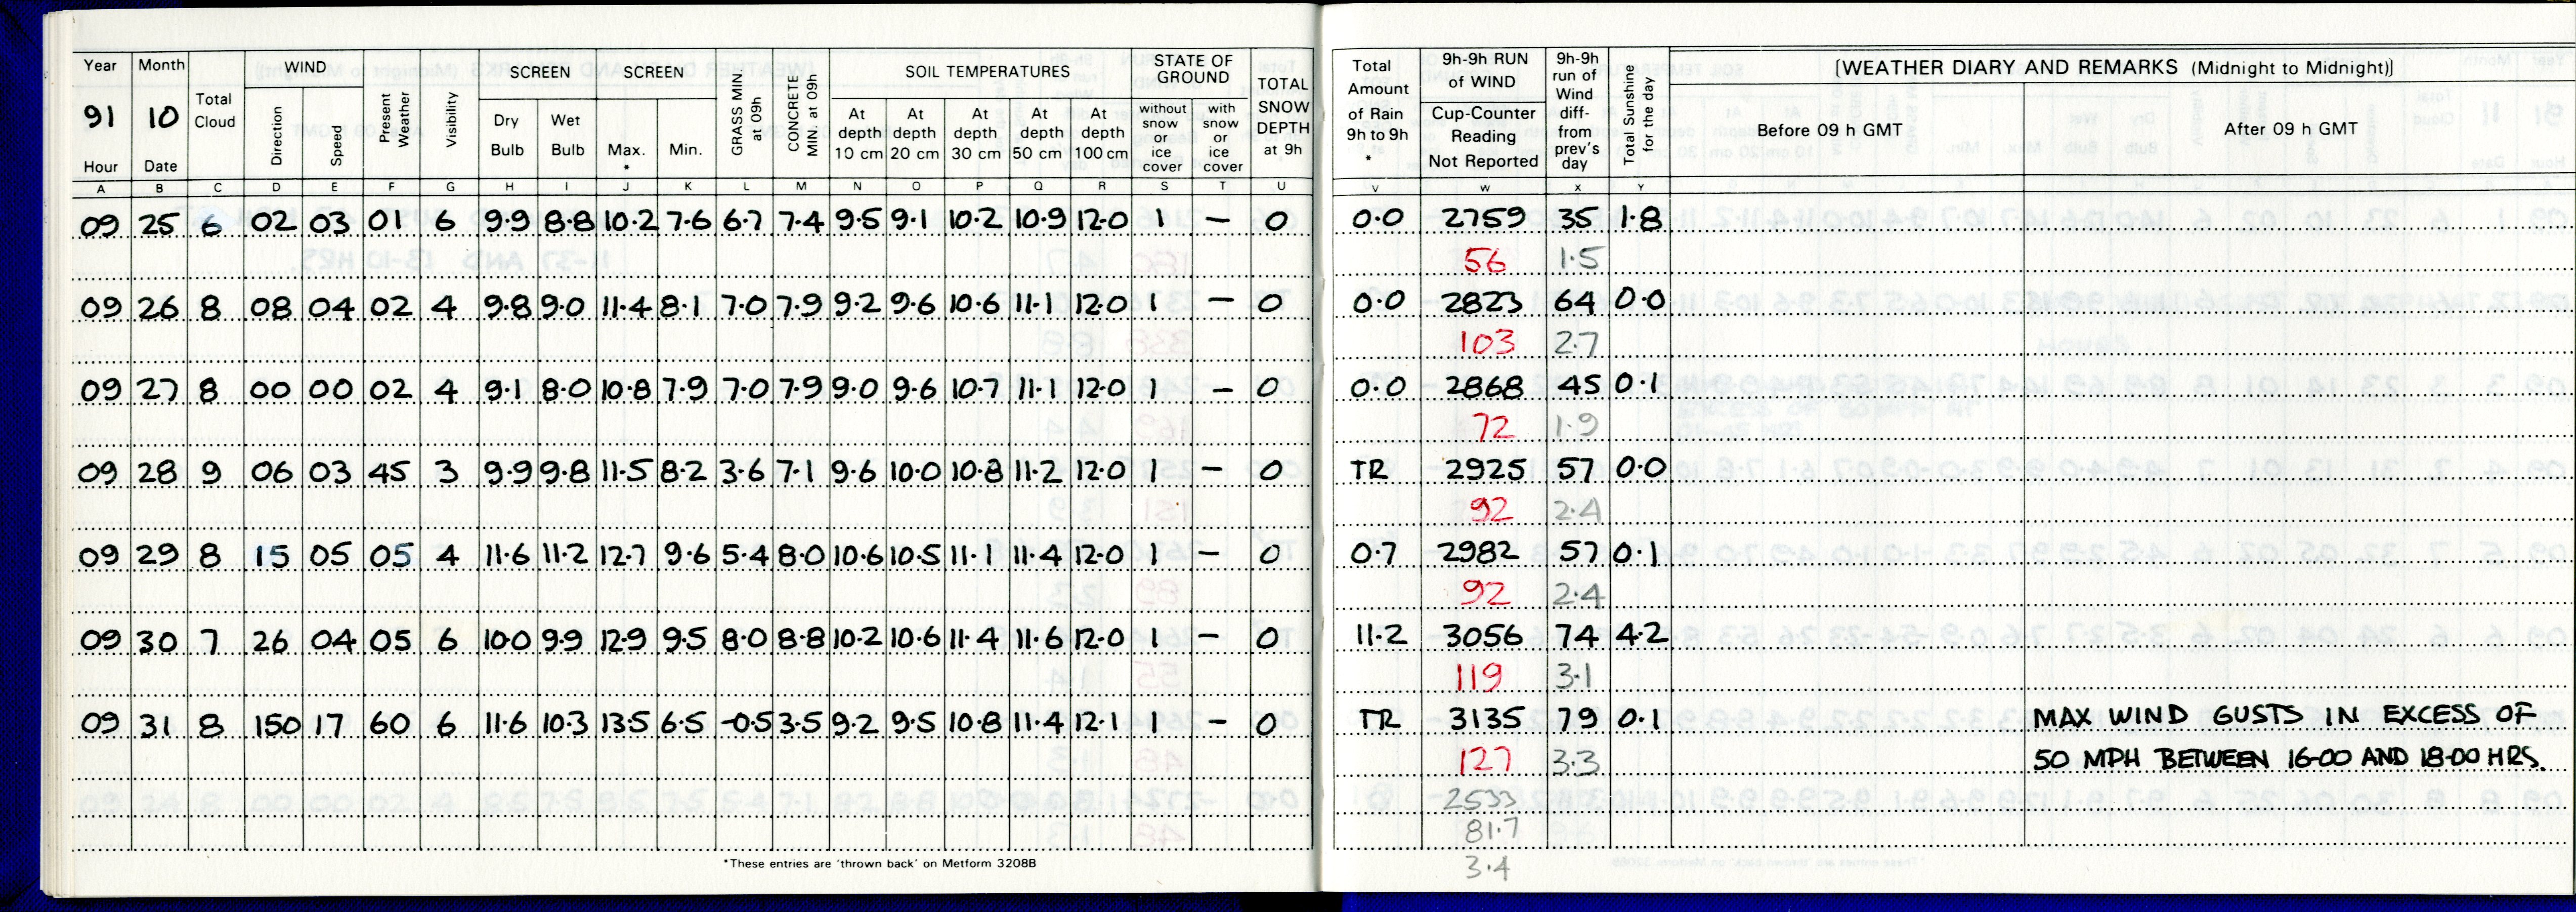 Year Month WIND SCREEN SCREEN GRASS MIN. at 09h CONCRETE MIN. at 09h SOIL TEMPERATURES STATE OF GROUND TOTAL SNOW DEPTH at 9h Total Amount of Rain 9h to 9h * 9h-9h RUN of WIND 9h-9h run of Wind diff- from prev's day Total Sunshine for the day [WEATHER DIARY AND REMARKS (Midnight to Midnight)]
91 10 Total Cloud Direction Speed Present Weather Visibility Dry Bulb Wet Bulb Max. * Min. At depth 10 cm At depth 20 cm At depth 30 cm At depth 50 cm At depth 100 cm without snow or ice cover with snow or ice cover Cup-Counter Reading Not Reported Before 09 h GMT After 09 h GMT
Hour Date
A B C D E F G H I J K L M N O P Q R S T U V W X Y
09 25 6 02 03 01 6 9.9 8.8 10.2 7.6 6.7 7.4 9.5 9.1 10.2 10.9 12.0 1 — 0 0.0 2759 35 1.8
56 1.5
09 26 8 08 04 02 4 9.8 9.0 11.4 8.1 7.0 7.9 9.2 9.6 10.6 11.1 12.0 1 — 0 0.0 2823 64 0.0
103 2.7
09 27 8 00 00 02 4 9.1 8.0 10.8 7.9 7.0 7.9 9.0 9.6 10.7 11.1 12.0 1 — 0 0.0 2868 45 0.1
72 1.9
09 28 9 06 03 45 3 9.9 9.8 11.5 8.2 3.6 7.1 9.6 10.0 10.8 11.2 12.0 1 — 0 TR 2925 57 0.0
92 2.4
09 29 8 15 05 05 4 11.6 11.2 12.7 9.6 5.4 8.0 10.6 10.5 11.1 11.4 12.0 1 — 0 0.7 2982 57 0.1
92 2.4
09 30 7 26 04 05 6 10.0 9.9 12.9 9.5 8.0 8.8 10.2 10.6 11.4 11.6 12.0 1 — 0 11.2 3056 74 4.2
119 3.1
09 31 8 150 17 60 6 11.6 10.3 13.5 6.5 -0.5 3.5 9.2 9.5 10.8 11.4 12.1 1 — 0 TR 3135 79 0.1 MAX WIND GUSTS IN EXCESS OF
127 3.3 50 MPH BETWEEN 16-00 AND 18-00 HRS.
2533
81.7
3.4
*These entries are 'thrown back' on Metform 3208B